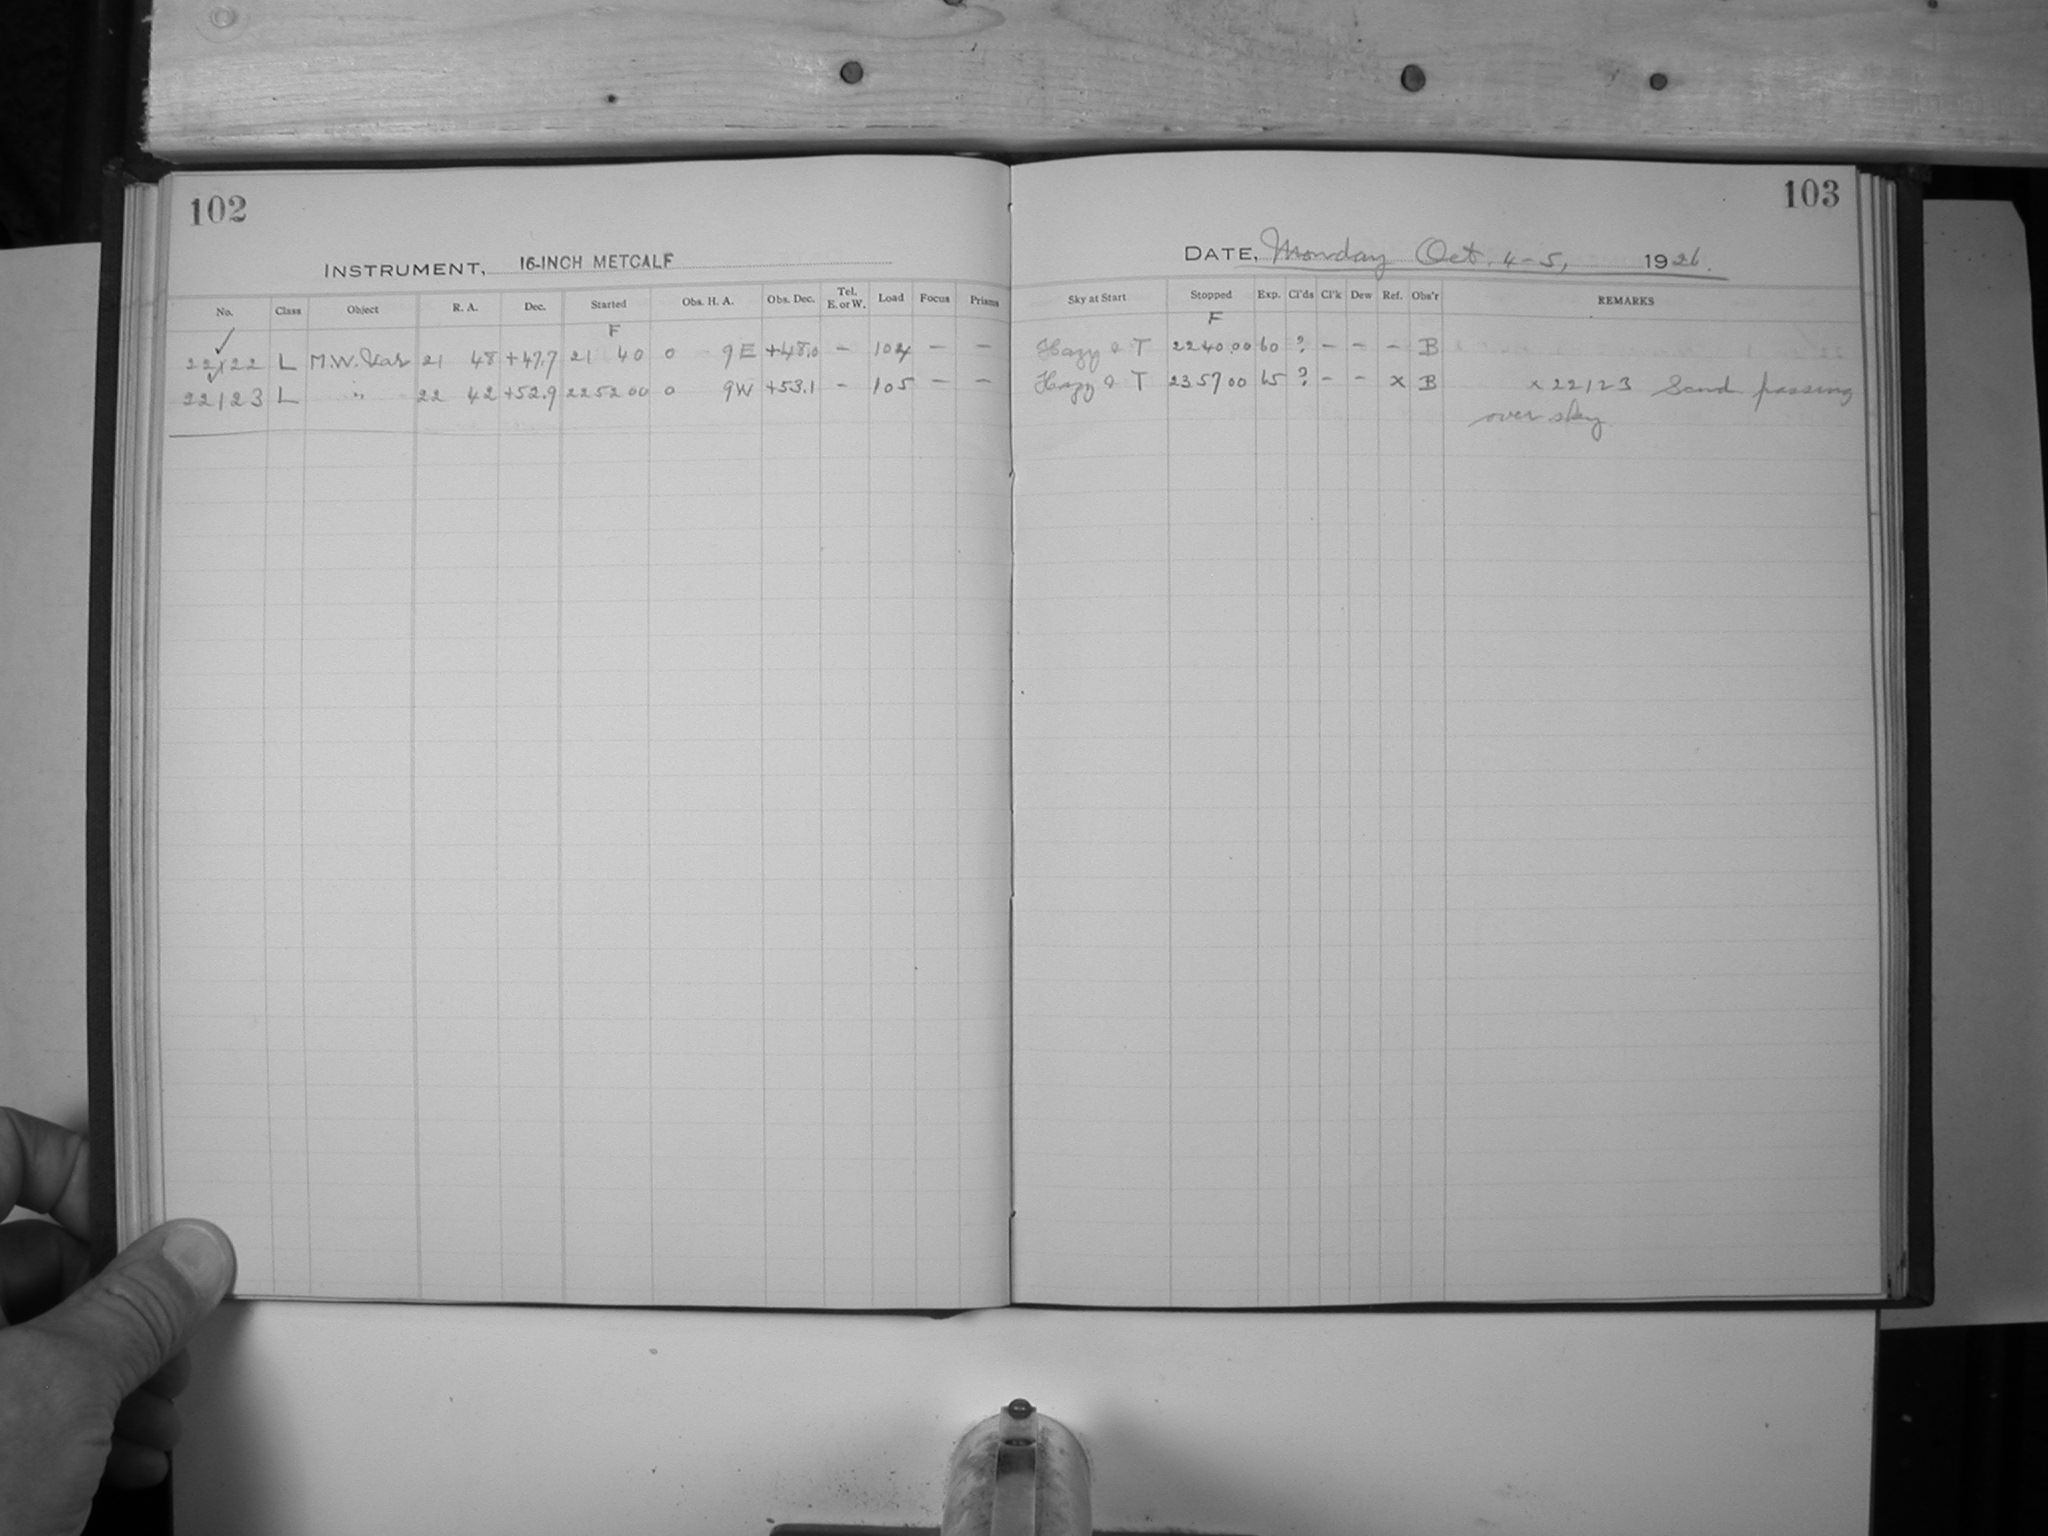 102
INSTRUMENT, 16-INCH METCALF
No. Class Object R. A. Dec. Started Obs. H. A. Obs. Dec. Tel. E. or W. Load Focus Prisms
F
22122 L M.W. Var 21 48 +47.7 21 40 0 9E +48.0 – 104 – –
22123 L " 22 42 +52.9 22 52 00 0 9W +53.1 – 105 – –
103
DATE, Monday Oct. 4-5, 1926.
Sky at Start Stopped Exp. Cl'ds Cl'k Dew Ref. Obs'r REMARKS
F
Hazy & T 22 40 00 60 ? – – – B
Hazy & T 23 57 00 65 ? – – x B x 22123 Scud passing
over sky